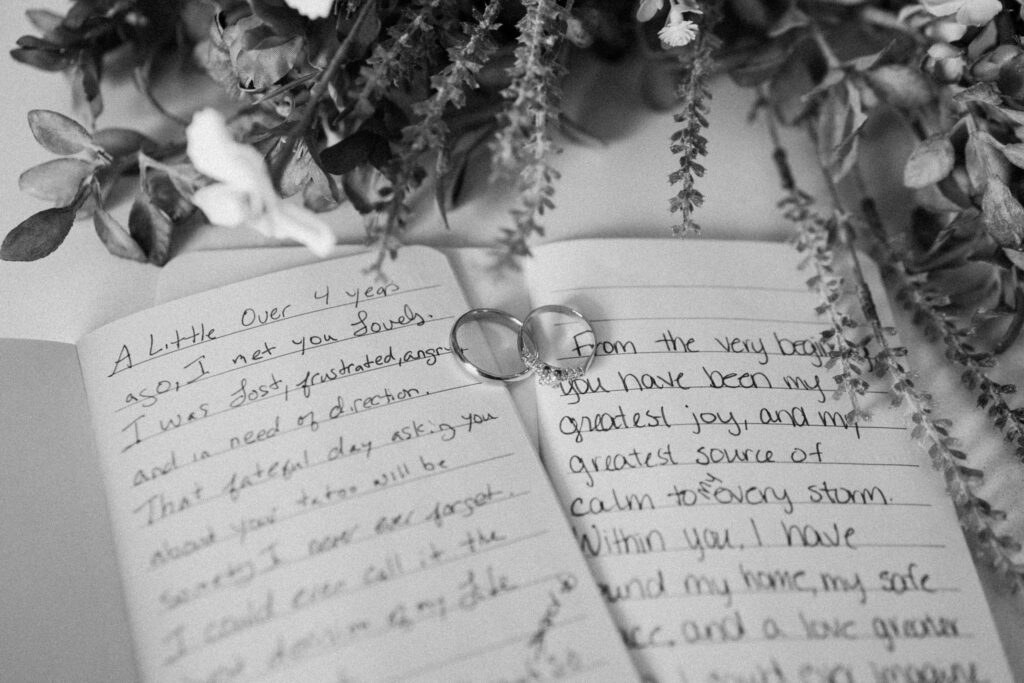 A Little Over 4 years
ago, I met you Lovely.
I was Lost, frustrated, angry
and in need of direction.
That fateful day asking you
about your tatoo will be
I never ever forget.
I could even call it the
decision of my Life
From the very begin
you have been my
greatest joy, and my
greatest source of
calm to my every storm.
Within you, I have
ound my home, my safe
and a love greater
imagine